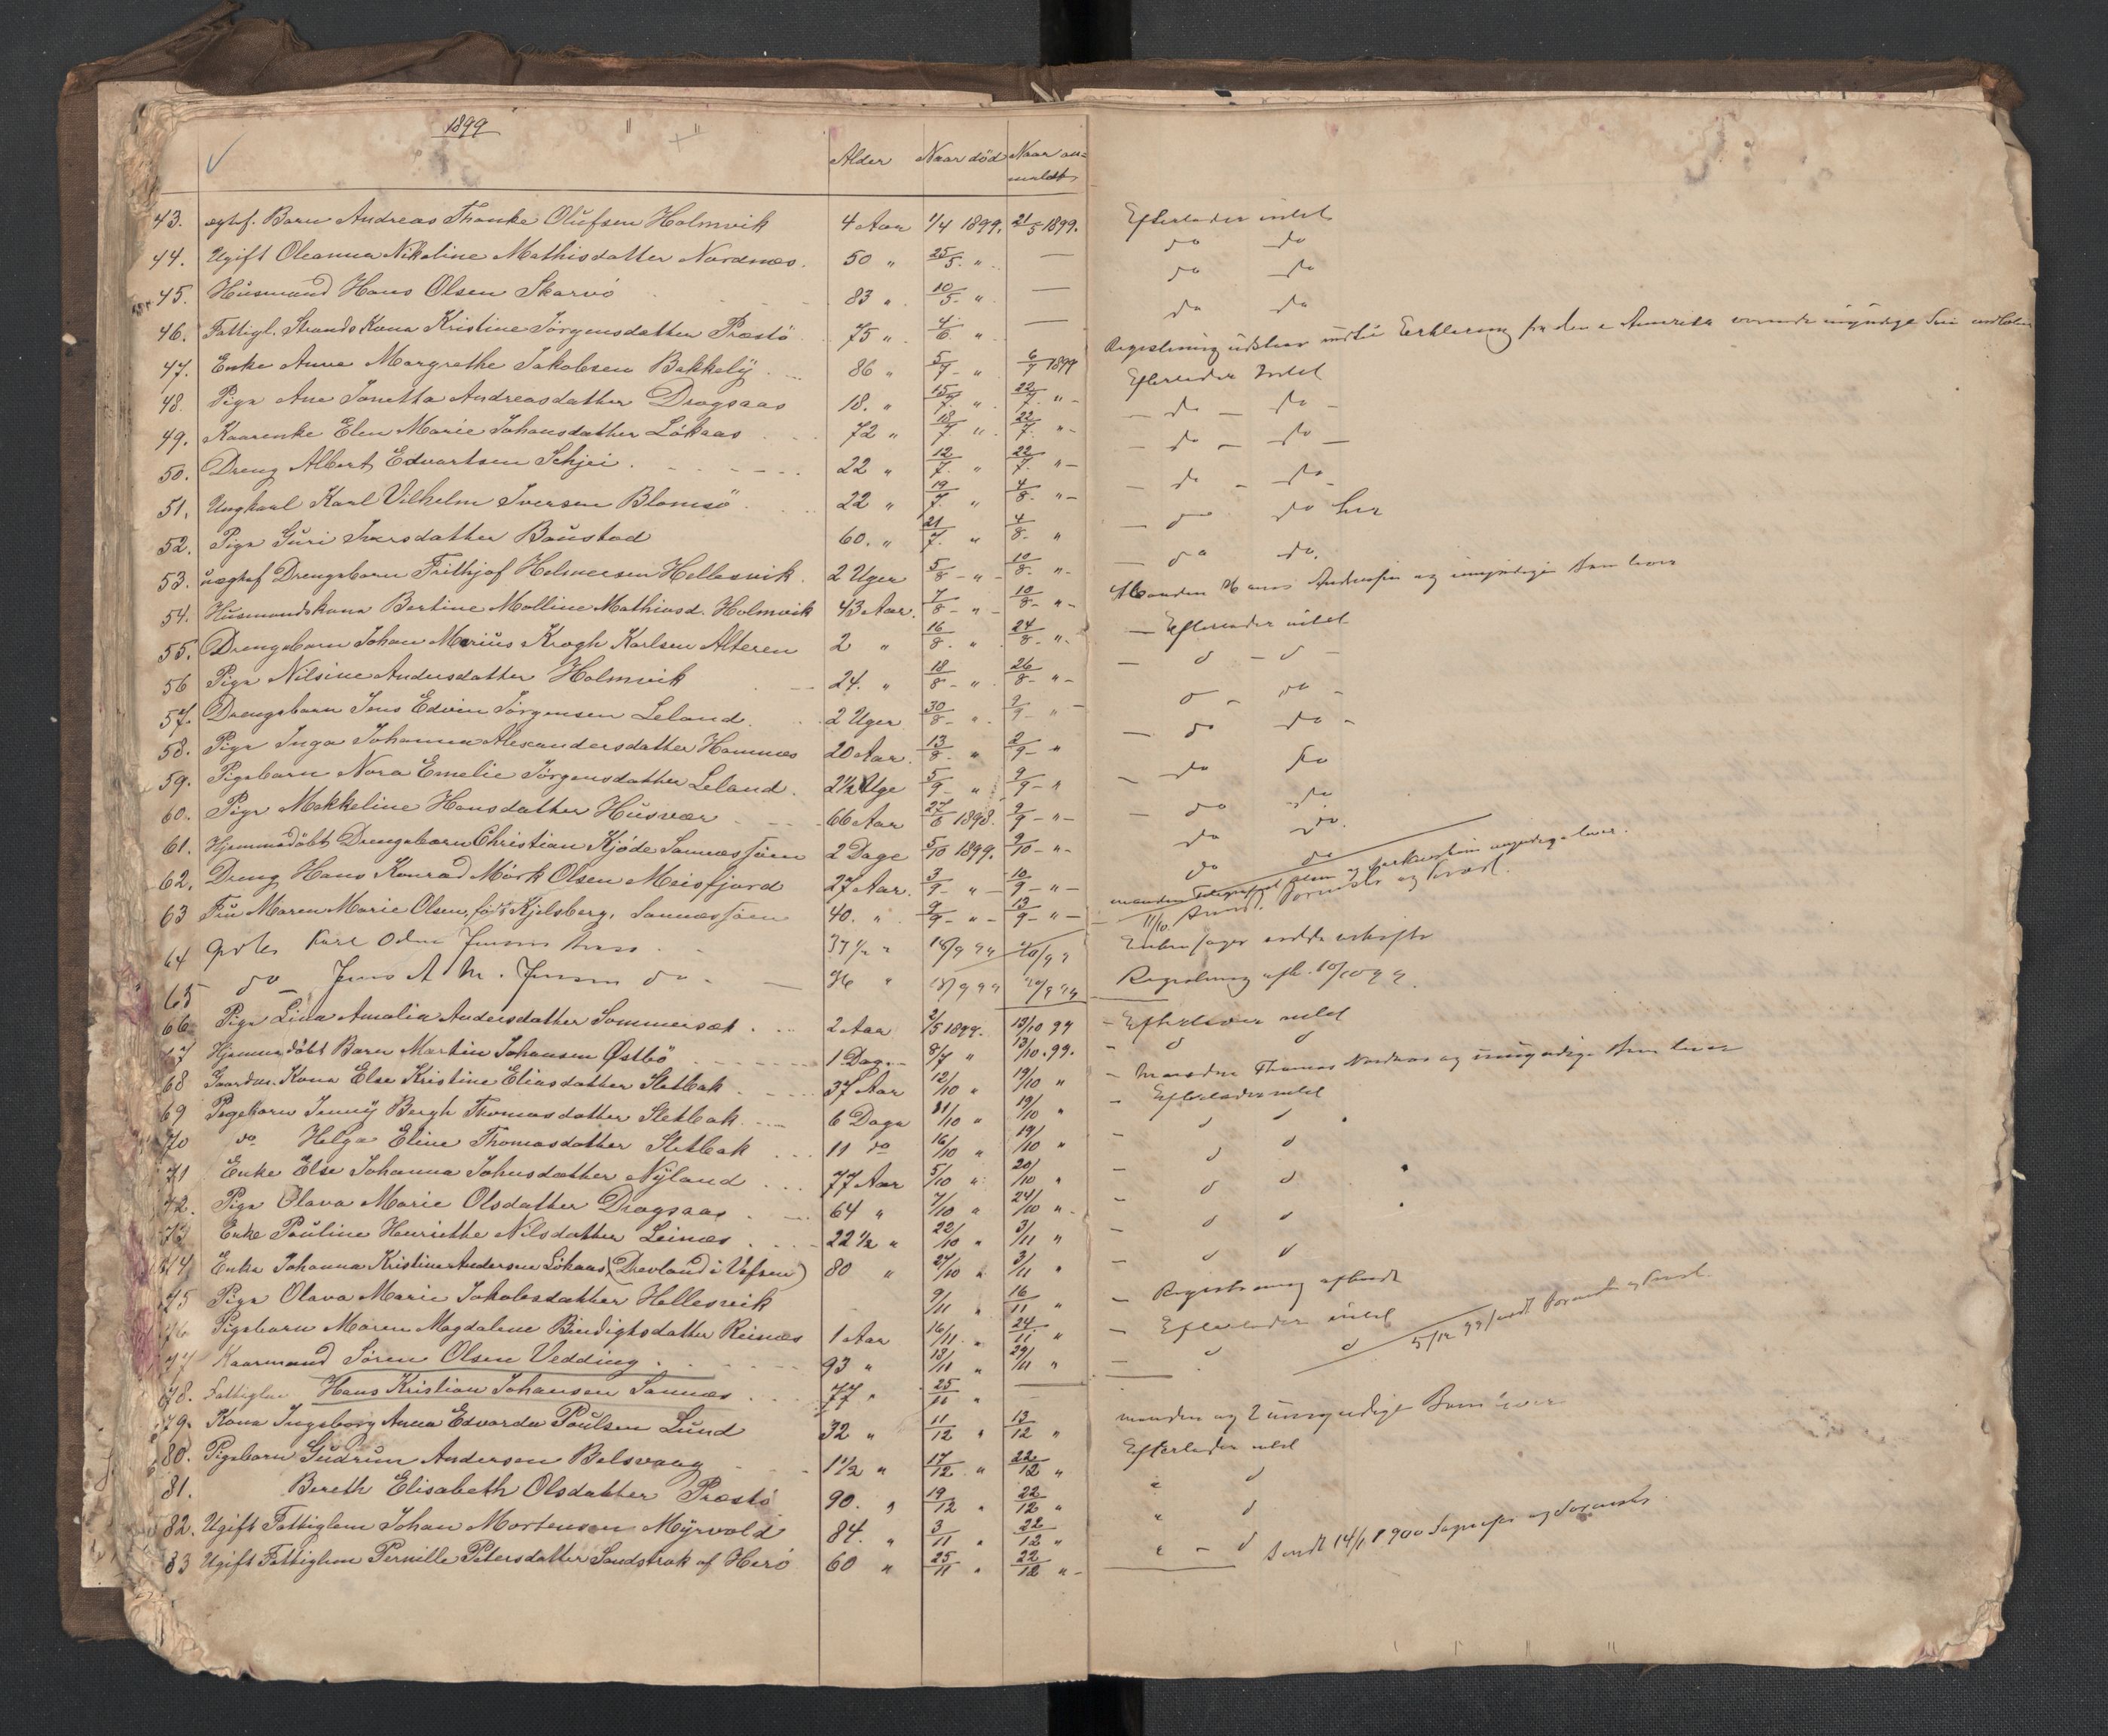 1899
Alder Naar död Naar an=
meldt
43. ægtef. Barn Andreas Thonke Olufsen Holmvik 4 Aar 1/4 1899. 21/5 1899. Efterlader intet
44. Ugift Oleanna Nikoline Mathisdatter Nordnæs. 50 " 25/5. " — do do
45. Husmand Hans Olsen Skarvö 83 " 10/5. " — do do
46. Fattigl. Strands Kona Kristine Jörgensdatter Præstö 75 " 4/6 " — do do
47. Enke Anne Margrethe Jakobsen Bakkely 86 " 5/7 - " 6/7 1899 Registrering indtil Erklæring fra den i Amerika værende myndige Sön
48. Pige Ane Jonetta Andreasdatter Dragsaas 18. " 15/7. " 22/7. " - Efterlader Intet
49. Kaarenke Elen Marie Johansdatter Lökaas 72 " 18/7 " 22/7. " - — do — do -
50. Dreng Albert Edvartsen Schjei. 22 " 12/7. " 22/7. " — — do — do —
51. Ungkarl Karl Vilhelm Iversen Blomsö 22 " 19/7. " 4/8. " - — do - do -
52. Pige Guri Iversdatter Baustad 60. " 21/7. " 4/8. " — do do
53. uægtef Drengebarn Frithjof Helmersen Hellesvik. 2 Uger 5/8 - " - 10/8. " - — do do.
54. Husmandskona Bertine Molline Mathiasd. Holmvik 43 Aar. 7/8 - " - 10/8 - " - Manden Hans Andersen og umyndige Børn lever
55. Drengebarn Johan Marius Krogh Karlsen Alteren 2 " 16/8. " 24/8 - " - — Efterlader intet
56 Pige Nilsine Andersdatter Holmvik 24. " 18/8 - " 26/8 - " - — d - d -
57. Drengebarn Jens Edvin Jörgensen Leland. 2 Uger 30/8 - " 2/9 - " - d - do -
58. Pige Inga Johanna Alexandersdatter Hamnæs 20 Aar. 13/8. " 2/9 - " — do do -
59. Pigebarn Nora Emelie Jörgensdatter Leland. 2 1/2 Uge 5/9 - " 9/9 - " — do do
60. Pige Makkeline Hansdatter Husvær 66 Aar 27/6 1898. 9/9 - " - — do do
61. Hjemmedöbt Drengebarn Christian Kjöde Sannæssjöen 2 Dage 5/10 1899. 9/10 - " - do do.
62. Dreng Hans Konrad Mörk Olsen Meisfjord 27 Aar. 3/9 - " — 10/9 - " - do do
63 Fru Maren Marie Olsen, född Kjelsberg, Sannæssjöen 40. " 9/9 - " - 13/9 - " — manden Telegrafist Olsen og umyndige lever.
11/10. Sendt Sorenskr og Provst.
64 Grdbr Karl Odin Jensen 37 1/2 " 18/9 99 20/9 9
65 do — Jens A M. Jensen do - 36 " 18/9 99 20/9 99 Registrering afh. 10/10 99.
66 Pige Lina Amalia Andersdatter Sommersæt. 2 Aar 2/5 1899. 13/10 99 - Efterlader intet
67 Hjemmedöbt Barn Martin Johansen Østbö 1 Dag. 8/7 " 13/10. 99. - d d
68 Gaardm. Kona Else Kristine Eliasdatter Sletbak. 37 Aar 12/10 " 19/10 " - Manden Thomas og umyndige Børn lever
69 Pigebarn Jenny Bergh Thomasdatter Sletbak. 6 Dage 11/10 " 19/10 " - Efterlader intet
70 do Helga Eline Thomasdatter Sletbak 11 do 16/10 " 19/10 " - d d
71 Enke Else Johanna Johnsdatter Nyland 77 Aar 5/10 " 20/10 " - d d
72. Pige Olava Marie Olsdatter Dragsaas 64 " 7/10 " 24/10 " - d d
73 Enke Pauline Henriette Nilsdatter Leinæs. 22 1/2 " 22/10 " 3/11 " - d d
74 Enke Johanna Kristine Andersen Lökaas, (Drevland i Vefsen) 80 " 27/10 " 3/11 " - d d
75 Pige Olava Marie Jakobsdatter Hellesvik 9/11 " 16/11 " - Registrering afholdt
76 Pigebarn Maren Magdalene Bendigtsdatter Reinæs 1 Aar 16/11. " 24/11 " - Efterlader intet
77 Kaarmand Sören Olsen Vedding 93 " 13/11 " 29/11 " — d d 5/12 99 sendt Sorenskr og Provst.
78. Fattiglem Hans Kristian Johansen Sannæs. 77 " 25/11 " —
79. Kona Ingeborg Anna Edvarda Paulsen Lund 32 " 11/12 " 13/12 " manden og 2 umyndige Børn lever
80. Pigebarn Gudrun Andersen Belsvaag 1 1/2 " 17/12 " 22/12 " Efterlader intet
81. Bereth Elisabeth Olsdatter Præstö 90. " 19/12 " 22/12 " " d
82. Ugift Fattiglem Johan Mortensen Myrvold 84. " 3/11 " 22/12 " " d
83 Ugift Fattiglem Pernille Petersdatter Sandstrak af Herö 60 " 25/11 " 22/12 " - " - d Sendt 14/1 1900 og Sorenskr.